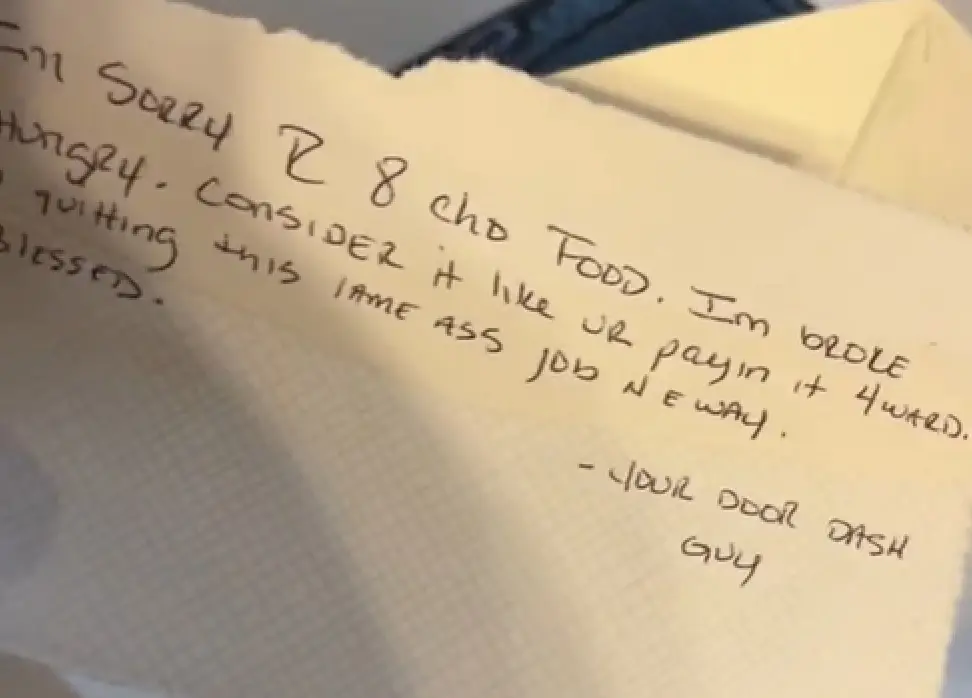 Im SORRY I 8 cho FOOD. Im bROKE
HUNGRY. CONSIDER it like UR payin it 4WARD.
quitting this lAME ASS JOb NEWAY.
BlESSED.
- YOUR DOOR DASH
GUY